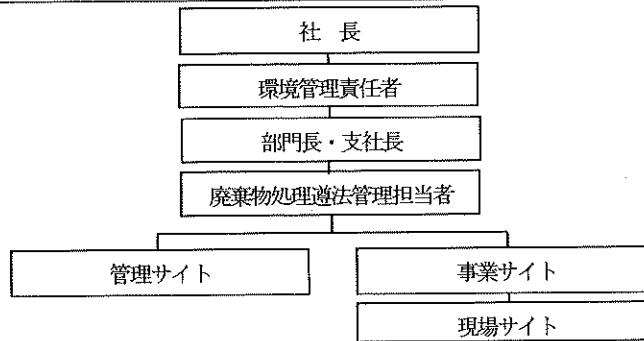 社 長
環境管理責任者
部門長・支社長
廃棄物処理遵法管理担当者
管理サイト
事業サイト
現場サイト